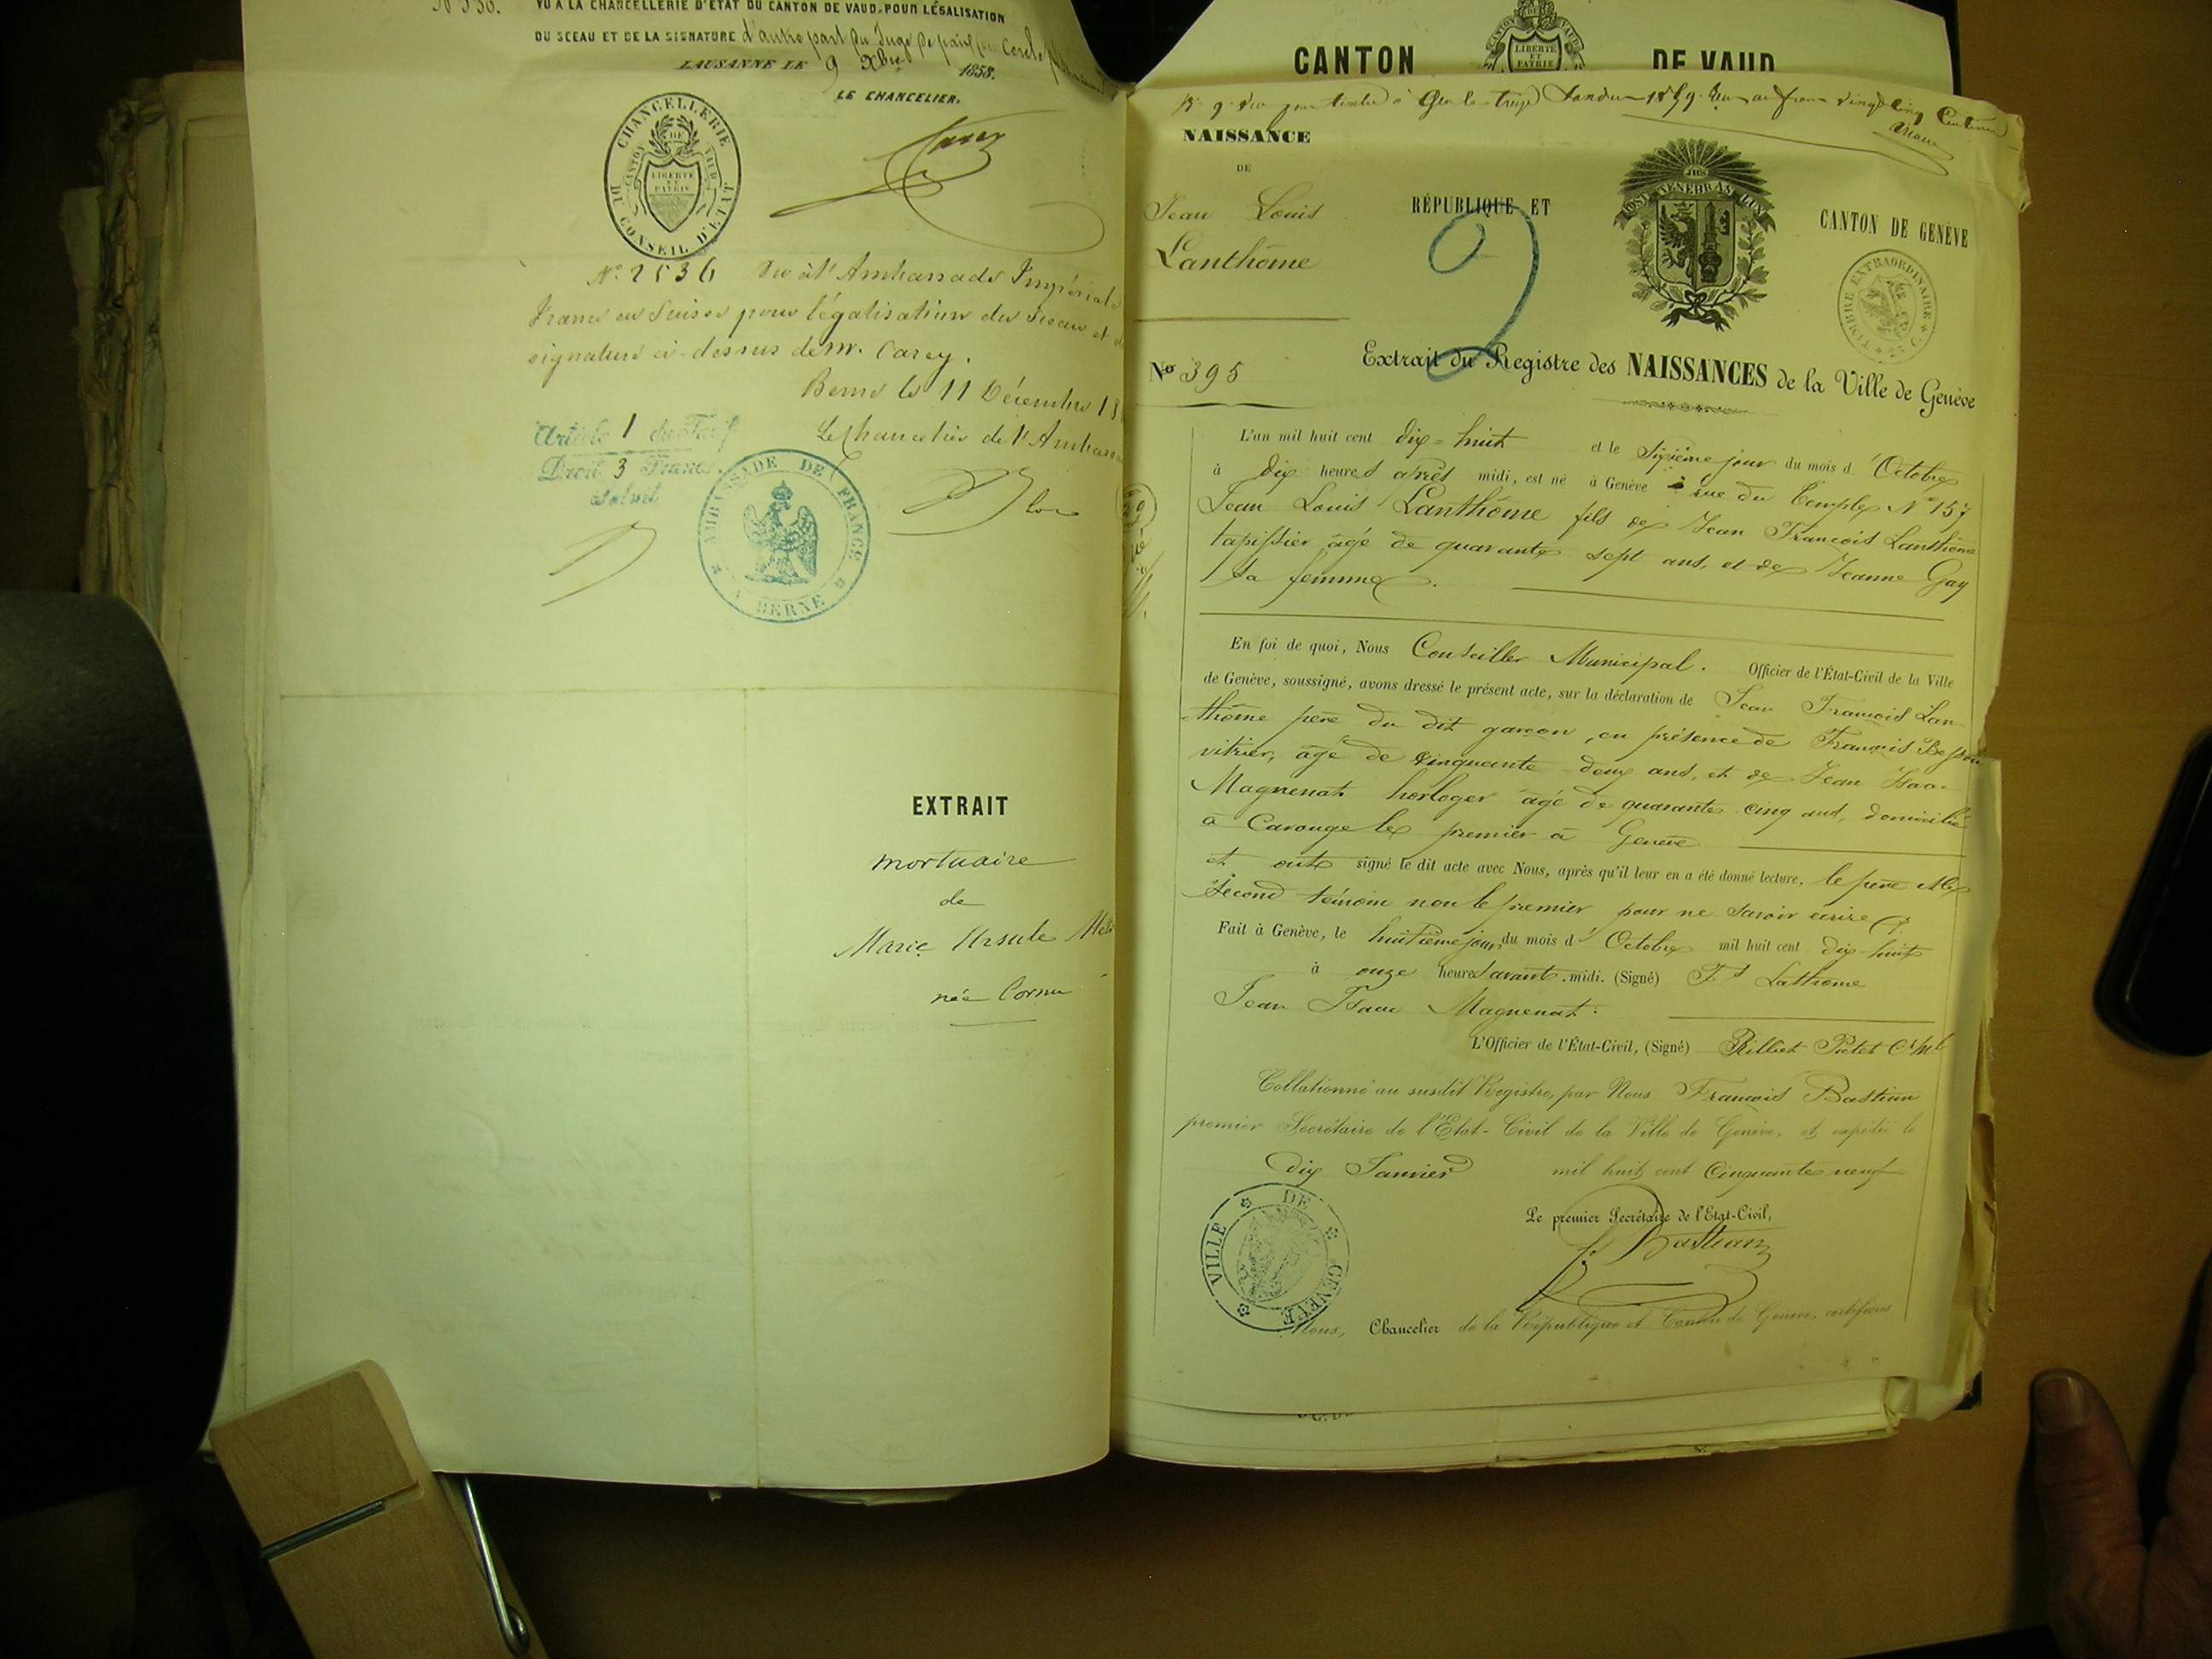 VU A LA CHANCELLERIE D'ÉTAT DU CANTON DE VAUD, POUR LÉGALISATION
DU SCEAU ET DE LA SIGNATURE d'autre part du Juge de paix du Cercle
LAUSANNE LE 9 Xbre 1858.
LE CHANCELIER,
CHANCELLERIE DU CONSEIL D'ÉTAT
CANTON DE VAUD
LIBERTÉ ET PATRIE
No 2536 Vu à l'Ambassade Impériale
France en Suisse pour légalisation du Sceau et
signature ci-dessus de M. Carey.
Berne le 11 Décembre 18
Le Chancelier de l'Ambass
Article 1 du Tarif
Droit 3 Francs
AMBASSADE DE FRANCE
A BERNE
EXTRAIT
mortuaire
de
Marie Ursule
née Cornu
CANTON DE VAUD
LIBERTÉ ET PATRIE
NAISSANCE
DE
Jean Louis
Lanthôme
No 395
RÉPUBLIQUE ET CANTON DE GENÈVE
2
JHS
POST TENEBRAS LUX
TIMBRE EXTRAORDINAIRE
25 C.
Extrait du Registre des NAISSANCES de la Ville de Genève
L'an mil huit cent dix-huit et le Sixième jour du mois d'Octobre
à dix heures après midi, est né à Genève rue du Temple No 157
Jean Louis Lanthôme fils de Jean François Lanthôme
tapissier âgé de quarante sept ans, et de Jeanne Gay
sa femme.
En foi de quoi, Nous Conseiller Municipal. Officier de l'État-Civil de la Ville
de Genève, soussigné, avons dressé le présent acte, sur la déclaration de Jean François Lan-
thôme père du dit garçon, en présence de François Besson
vitrier, âgé de cinquante deux ans, et de Jean Isaac
Magnenat horloger âgé de quarante cinq ans, domicilié
à Carouge les premier à Genève
et ont signé le dit acte avec Nous, après qu'il leur en a été donné lecture, le père et le
second témoin non le premier pour ne savoir écrire
Fait à Genève, le huitième jour du mois d'Octobre mil huit cent dix-huit
à onze heures avant midi. (Signé) Lathome
Jean Isaac Magnenat.
L'Officier de l'État-Civil, (Signé) Rilliet Pictet
Collationné au susdit Registre, par Nous François Bastian
premier Secrétaire de l'Etat-Civil de la Ville de Genève, et expédié le
dix Janvier mil huit cent Cinquante neuf
Le premier Secrétaire de l'Etat-Civil,
f. Bastian
VILLE DE GENÈVE
Nous, Chancelier de la République et Canton de Genève, certifions